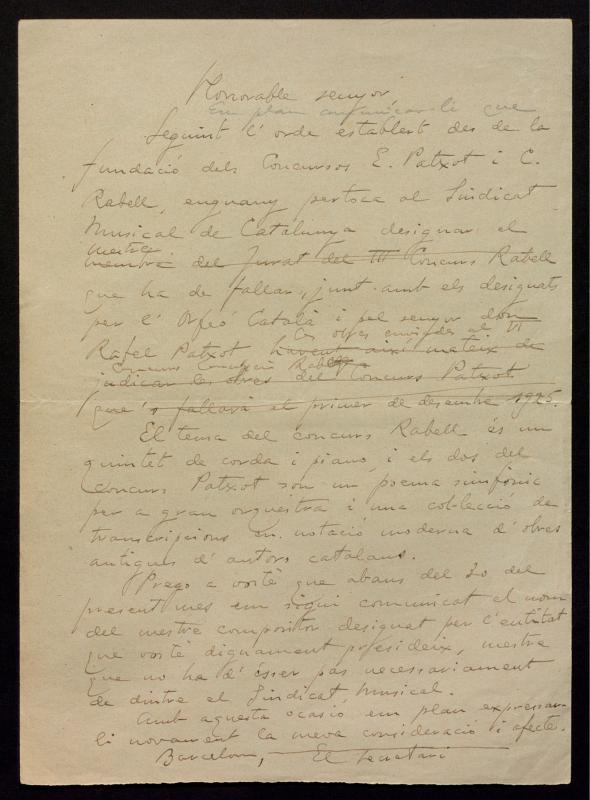 Honorable senyor
Em plau comunicar-li que
Seguint l'orde establert des de la
fundació dels Concursos E. Patxot i C.
Rabell, enguany pertoca al Sindicat
Musical de Catalunya designar el
mestre
membre del Jurat del III Concurs Rabell
que ha de fallar, junt amb els designats
per l'Orfeó Català i pel senyor don
les obres enviades al VI
Rafel Patxot havent així mateix de
Concurs Concepció Rabell
judicar les obres del Concurs Patxot
que's fallarà el primer de desembre 1925.
El tema del concurs Rabell és un
quintet de corda i piano, i els dos del
Concurs Patxot son un poema simfònic
per a gran orquestra i una col·lecció de
transcripcions en notació moderna d'obres
antigues d'autors catalans.
Prego a vostè que abans del 20 del
present mes em sigui comunicat el nom
del mestre compositor designat per l'entitat
que vostè dignament presideix, mestre
que no ha d'ésser pas necessàriament
de dintre el Sindicat Musical.
Amb aquesta ocasió em plau expressar-
li novament la meva consideració i afecte.
Barcelona, El Secretari